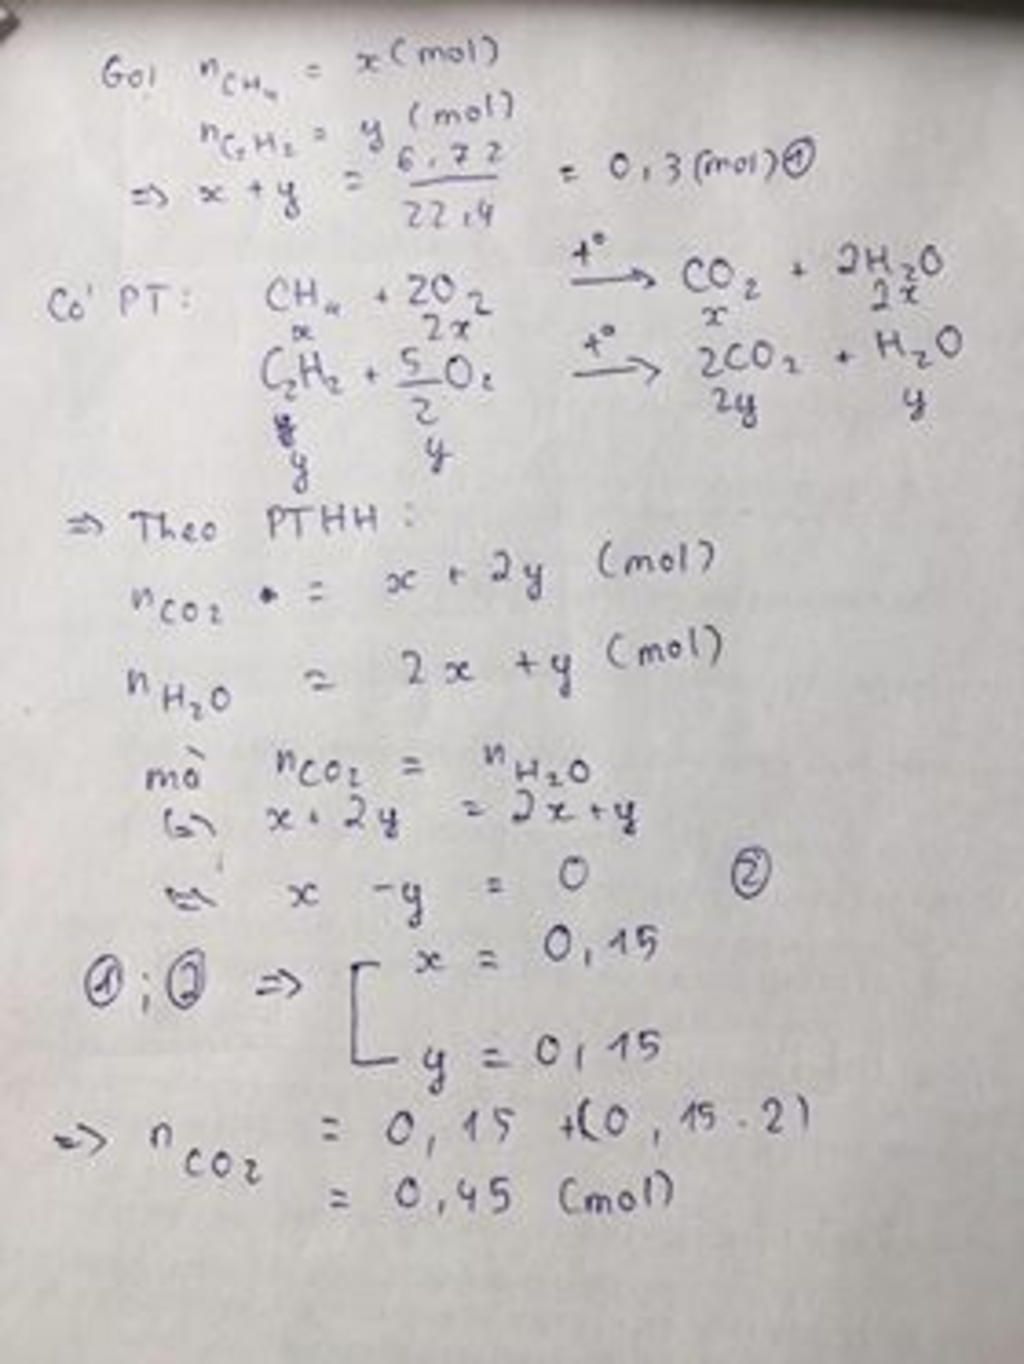 Gọi nCH₄ = x (mol)
nC₂H₂ = y (mol)
=> x + y = 6,72 / 22,4 = 0,3 (mol) ①
Có PT: CH₄ + 2O₂ t° → CO₂ + 2H₂O
x 2x x 2x
C₂H₂ + 5/2 O₂ t° → 2CO₂ + H₂O
y y 2y y
=> Theo PTHH:
nCO₂ = x + 2y (mol)
nH₂O = 2x + y (mol)
mà nCO₂ = nH₂O
<=> x + 2y = 2x + y
<=> x - y = 0 ②
①; ② => [ x = 0,15
y = 0,15
=> nCO₂ = 0,15 + (0,15 . 2)
= 0,45 (mol)